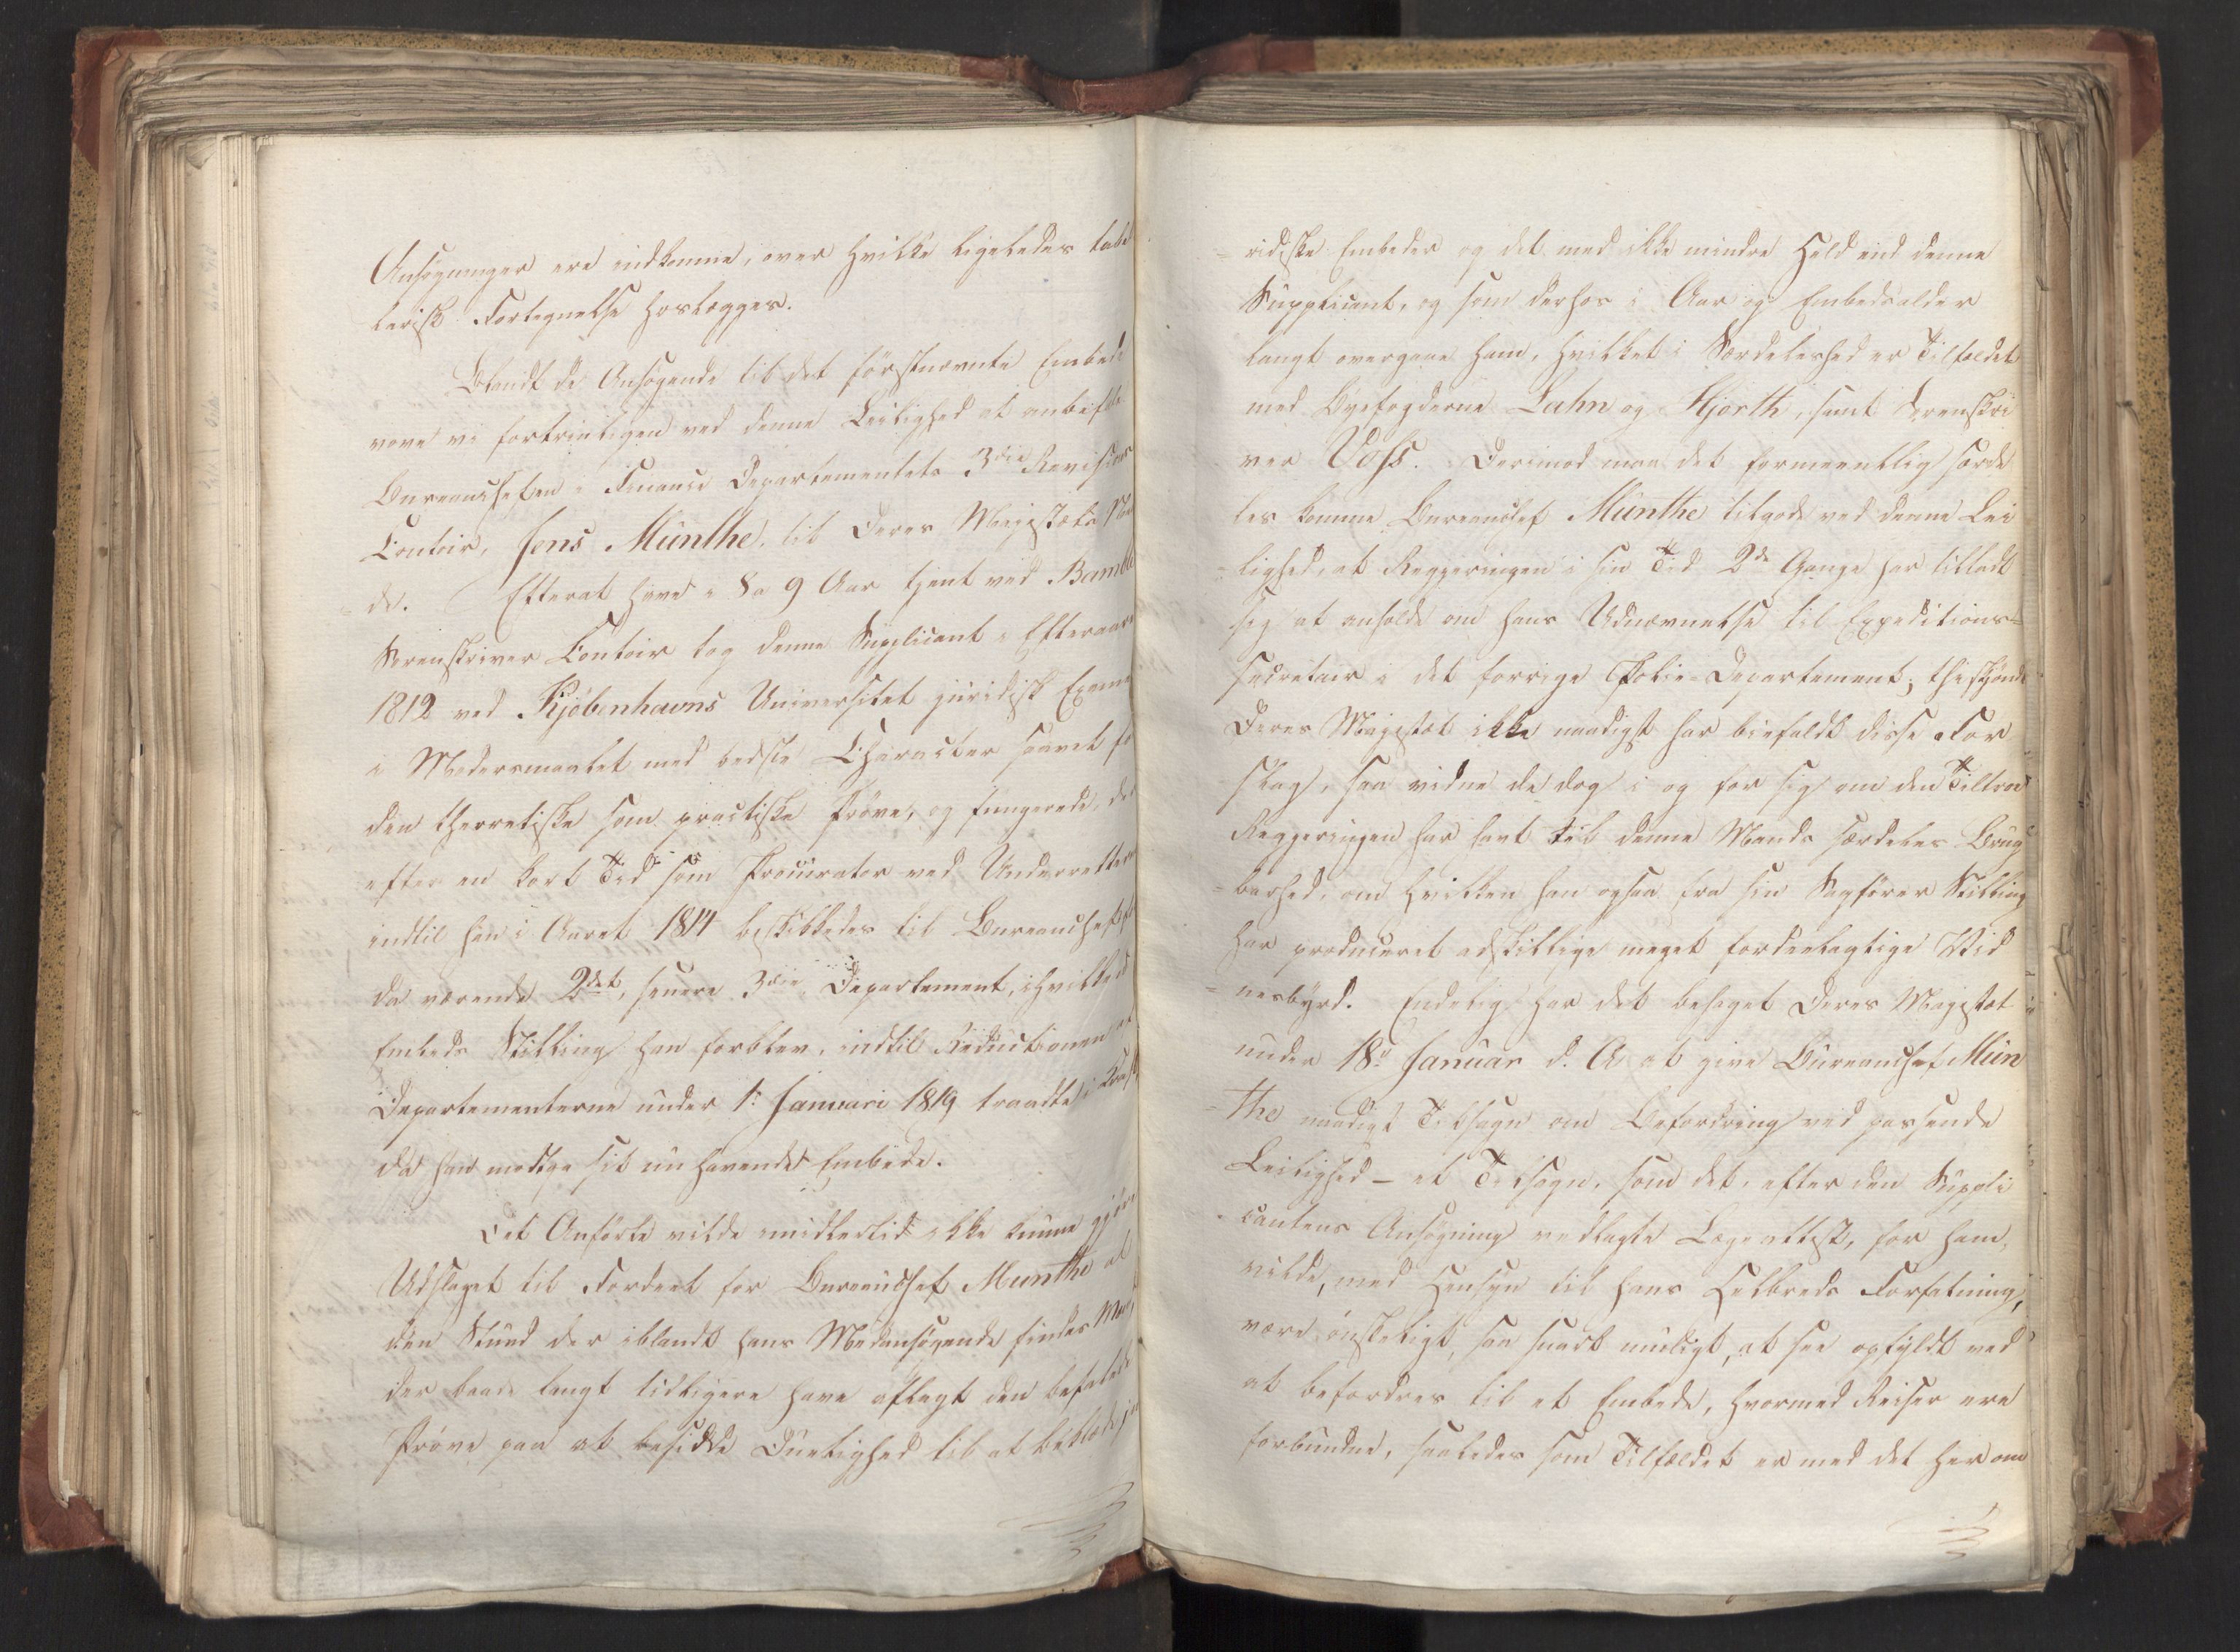 Ansøgninger ere indkomne, over hvilke ligeledes tabel
larisk Fortegnelse hoslægges.
Blandt de Ansøgende til det førstnævnte Embede
vove vi fortrinligen ved denne Leilighed at anbefale
Bureauchefen i Finance Departementets 3die Revisions
Contoir, Jens Münthe, til Deres Majestæts Naa
de. Efterat have i 8 a 9 Aar tjent ved Bamble
Sorenskriver Contoir tog denne Supplicant i Efteraaret
1812 ved Kjøbenhavns Universitet juridisk Examen
i Modersmaalet med bedste Character saavel for
den theoretiske som practiske Prøve, og fungerede, der
efter en kort Tid som Procurator ved Underretterne
indtil han i Aaret 1814 beskikkedes til Bureauchef
da værende 2det, senere 3die Departement, i hvilken
Embeds Stilling han forblev, indtil Reductionen af
Departementerne under 1: Januari 1819 traadte i Kraft,
da han modtog sit nu havende Embede.
Det Anførte vilde imidlertid ikke kunne gjøre
Udslaget til Fordeel for Bureauchef Munthe al
den Stund der iblandt hans Medansøgende findes Mænd,
der baade langt tidligere have aflagt den befalede
Prøve paa at besidde Duelighed til at beklæde ju
= ridiske Embeder og det med ikke mindre Held end denne
Supplicant, og som derhos i Aar og Embedsalder
langt overgaae ham, hvilket i Særdeleshed er Tilfældet
med Byefogderne Lahn og Hjorth, samt Sorenskri
ver Voss. Derimod maa det formeentlig særde
les komme Bureauchef Münthe tilgode ved denne Lei
= lighed, at Regjeringen i sin Tid 2de Gange har tilladt
sig at anholde om hans Udnævnelse til Expeditions=
secretair i det forrige Politie-Departement; thi skjøndt
Deres Majestæt ikke naadigst har biefaldt disse For
slag, saa vidne de dog i og for sig om den Tiltroe
Regjeringen har havt til denne Mands særdeles Brug
= barhed, om hvilken han ogsaa fra sin Sagfører Stilling
har produceret adskillige meget fordeelagtige Vid
= nesbyrd. Endelig har det behaget Deres Majestæt
under 18: Januar d. A. at give Bureauchef Mün
= the naadigt Tilsagn om Befordring ved passende
Leilighed – et Tilsagn, som det, efter den Suppli
cantens Ansøgning vedlagte Lægeattest, for ham,
vilde, med Hensyn til hans Helbreds Forfatning,
være ønskeligt, saa snart muligt, at see opfyldt ved
at befordres til et Embede, hvormed Reiser ere
forbundne, saaledes som Tilfældet er med det her om